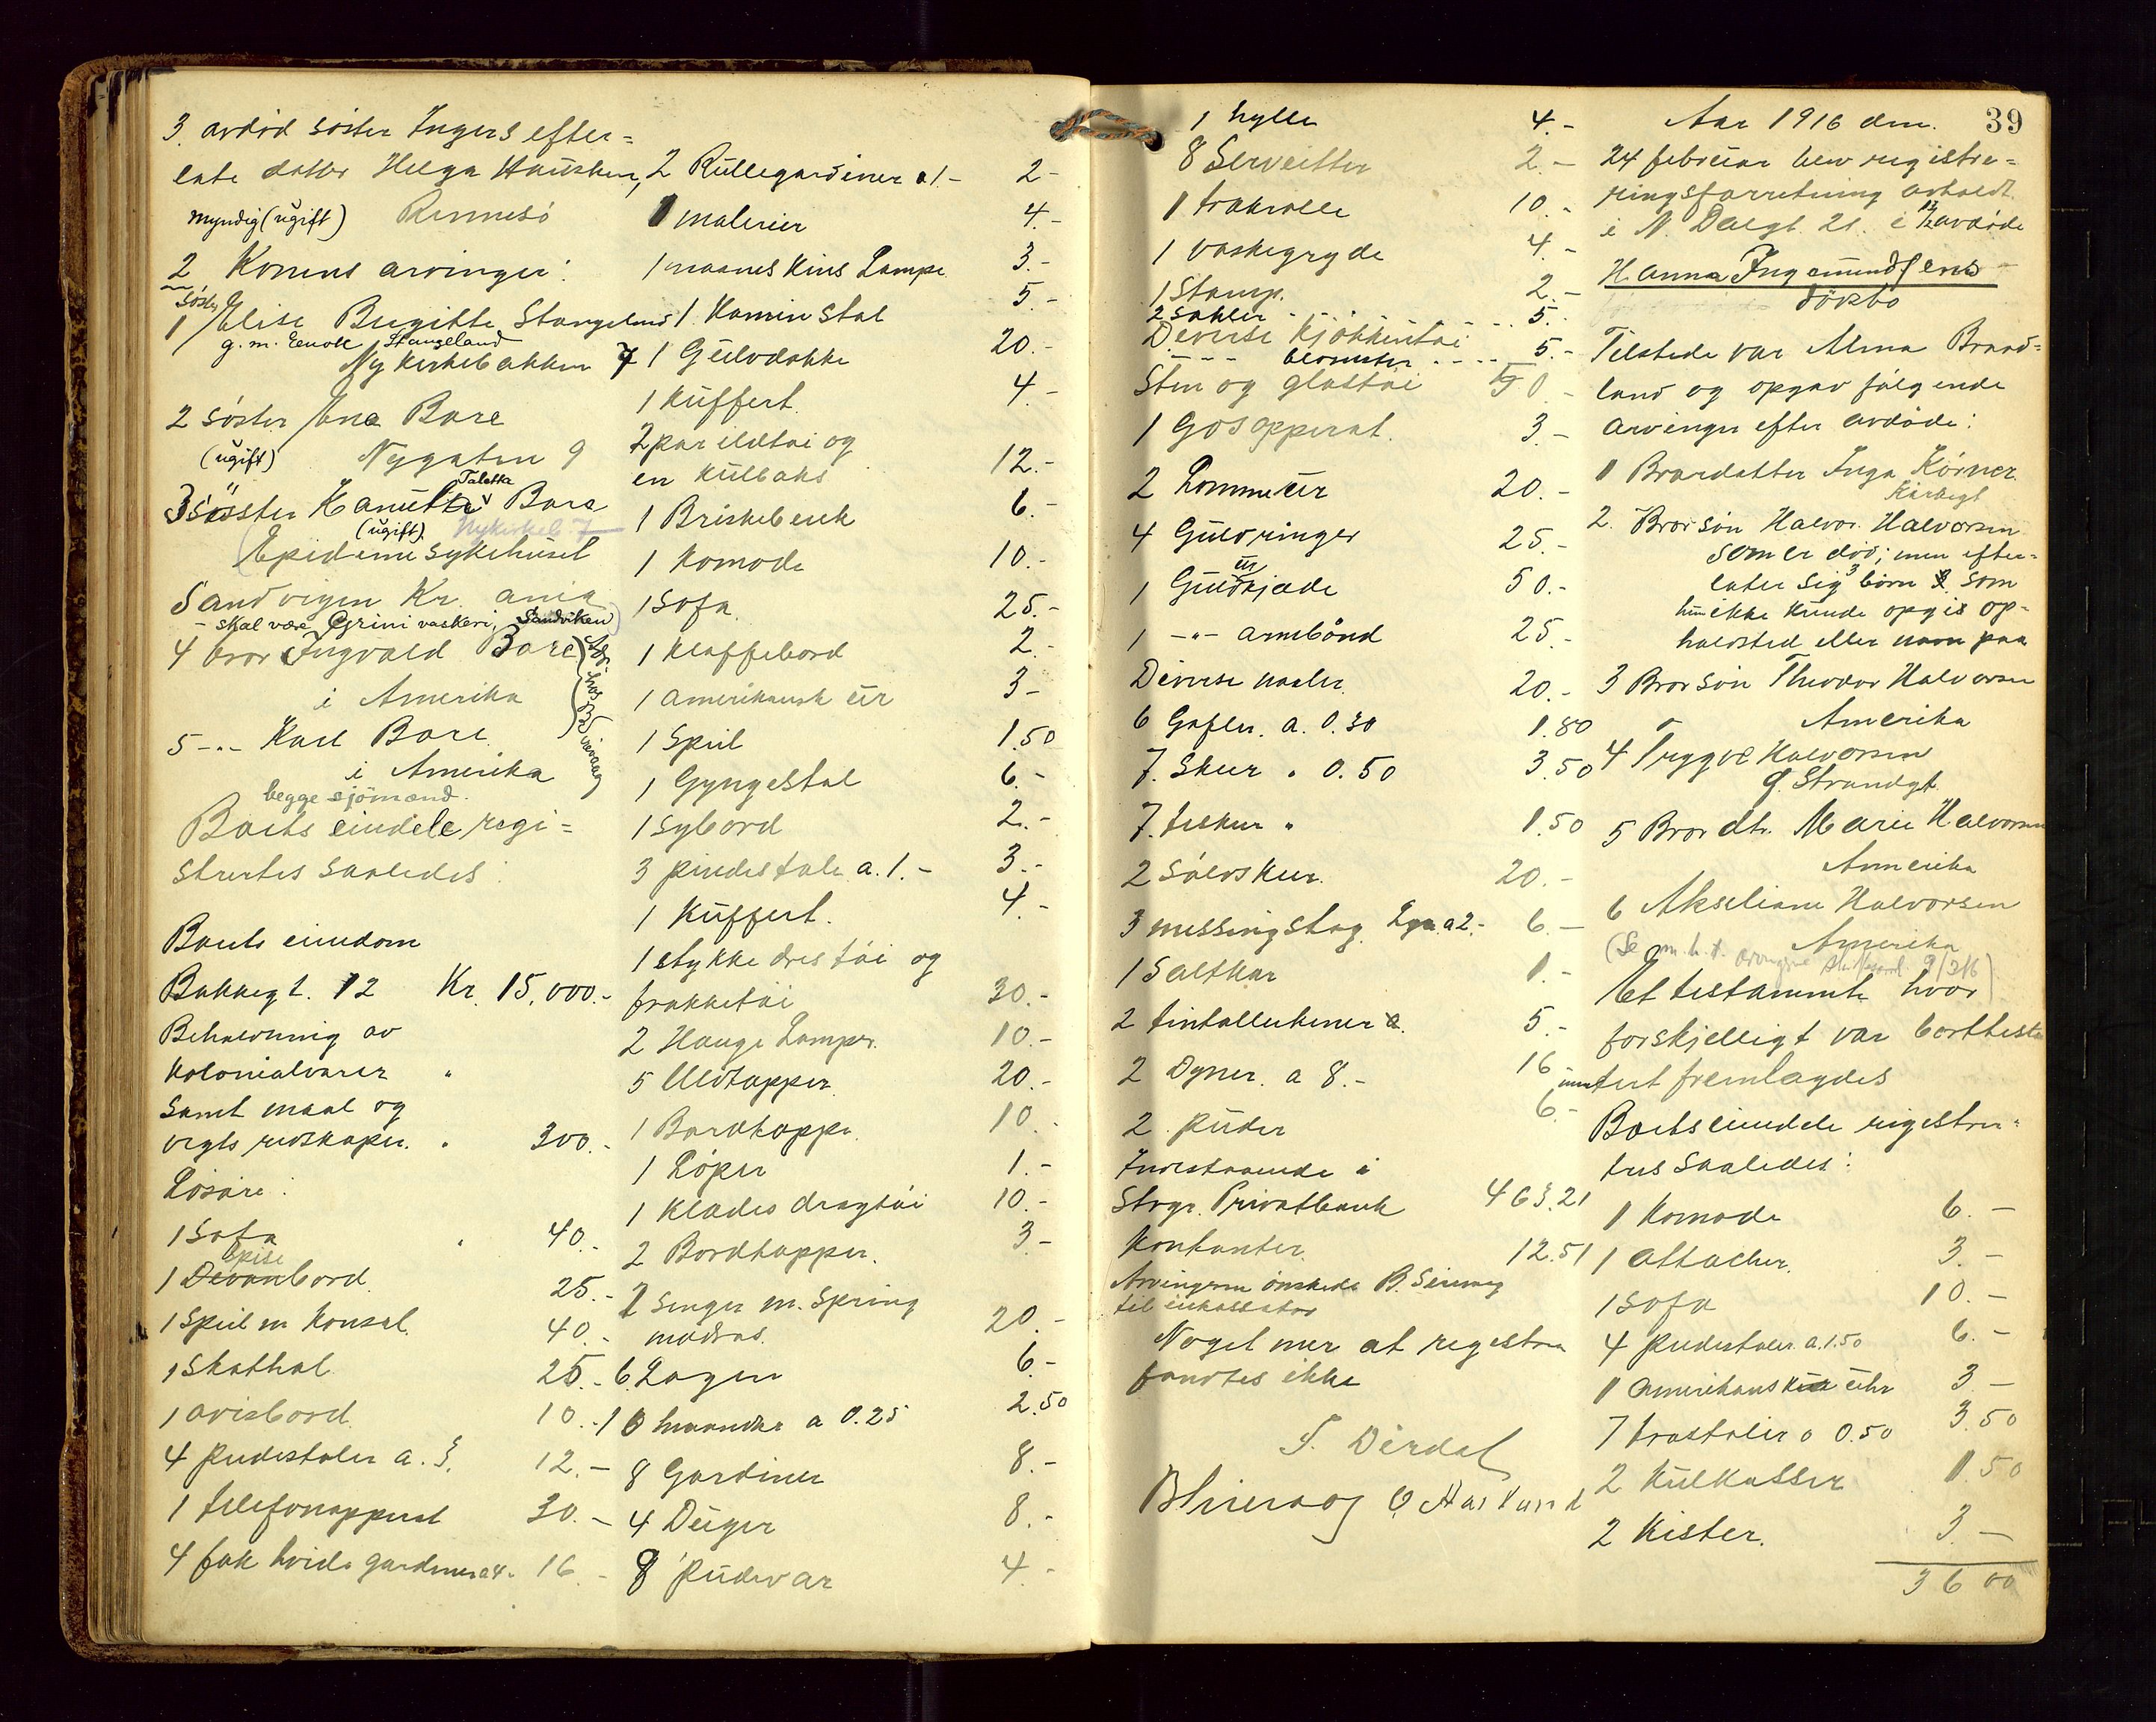 3. avdød søster Ingers efter=
late datter Helga Hausken,
myndig (ugift) Rennesø
2 Konens arvinger:
søster
1 Elise Birgitte Stangeland
g. m. Enok Stangeland
Ny kirkebakken 7
2 søster Ane Bore
(ugift) Nygaten 9
Taletta
3 søster Hanna Bore
(ugift) Nykirkeb. 7
Epidemi sykehuset
Sandvigen Kr. ania
- skal være Grini vaskeri, Sandviken)
4 bror Ingvald Bore
i Amerika
5 -"- Karl Bore
i Amerika
begge sjömænd.
Boets eiendele regi=
strertes saaledes:
Boets eiendom
Bakkegt. 12 Kr. 15,000.-
Beholdning av
Kolonialvarer "
samt maal og
vegts redskaper. " 300.-
Løsøre:
1 Sofa " 40.-
spise
1 Divanbord 25.-
1 Speil m Konsol. 40.-
1 Skathol 25.-
1 avisbord 10.-
4 pudestoler a. 3. 12.-
1 telefonapperat 30.-
4 fak hvide gardiner a 4. 16.-
2 Rullegardiner a 1.- 2-
1 malerier 4.-
1 maaneskins Lampe 3.-
1 Kamin stol 5.-
1 Gulvdokke 20.-
1 Kuffert 4.-
2 par ildtøi og
en Kulboks 12.-
1 Briskebenk 6.-
1 Komode 10.-
1 Sofa 25.-
1 Klaffebord 2.-
1 amerikansk ur 3-
1 Speil 1.50
1 Gyngestol 6.-
1 Sybord 2.-
3 pindestole a. 1.- 3.-
1 Kuffert. 4.-
1 stykke drestøi og
frakketøi 30.-
2 Hænge Lamper. 10.-
5 Uldtepper 20.-
1 Bordteppe 10.-
1 Løper 1.-
1 Klædes dragtøi 10.-
2 Bordtepper. 3-
2 Senger m. Spring
madras. 20.-
6 Lagen 6.-
10 haandkl. a 0.25 2.50
8 Gardiner 8.-
4 Duger 8.-
8 Pudevar 4.-
1 hylle 4.-
8 Servietter 2.-
1 trakrolle 10.-
1 vaskegryde 4.-
1 Stamp. 2.-
2 Sahler 5.-
Diverse Kjøkkentøi 5.-
---- blomster ----
Sten og glastøi 50.-
1 Gosopperat. 3.-
2 Lommeur 20.-
4 Guldringer 25.-
ur
1 Guldkjæde 50.-
1 -"- armbånd 25.-
Diverse naaler 20.-
6 Gafler. a. 0.30 1.80
7. Skeer " 0.50 3.50
7. teskeer " 1.50
2 Sølvskeer. 20.-
3 messingstag. a 2.- 6.-
1 Saltkar 1.-
2 tintallerkener 5.-
2 Dyner. a 8.- 16
2 puder 6.-
Indestaaende i
Stvgr. Privatbank 463.21
Kontanter. 12.51
Arvingerne ønskede B. Sirevaag
til inkassator
Noget mer at registrere
fandtes ikke
S. Dirdal
B Sirevaag O. Haaland
39
Aar 1916 den
24 februar blev registre=
ringsforretning avholdt
i N. Dalgt 21. i avdøde
Hanna Ingemundsens
Tilstede var Alma Braad=
land og opgav følgende
arvinger efter avdøde:
1 Brordatter Inga Körner
Kirkegt
2. Bror søn Halvor Halvorsen
som er død; men efter=
later sig 3 børn som
hun ikke kunde opgi op-
holdsted eller navn paa
3 Bror søn Theodor Halvorsen
Amerika
4 Trygve Halvorsen
9. Strandgt
5 Bror dtr. Marie Halvorsen
Amerika
6 Akseliane Halvorsen
Amerika
(Se m. h. t. arvingene 9/3 16)
Et testamente hvor
forskjelligt var borttesta
mentert fremlagdes
Boets eiendele registrer=
tes saaledes:
1 Komode 6.-
1 attacher. 3.-
1 Sofa 10.-
4 pudestoler a. 1.50 6.-
1 Amerikansk uhr 3-
7 træstoler a 0.50 3.50
2 Kulkasser 1.50
2 Kister. 3-
36 00